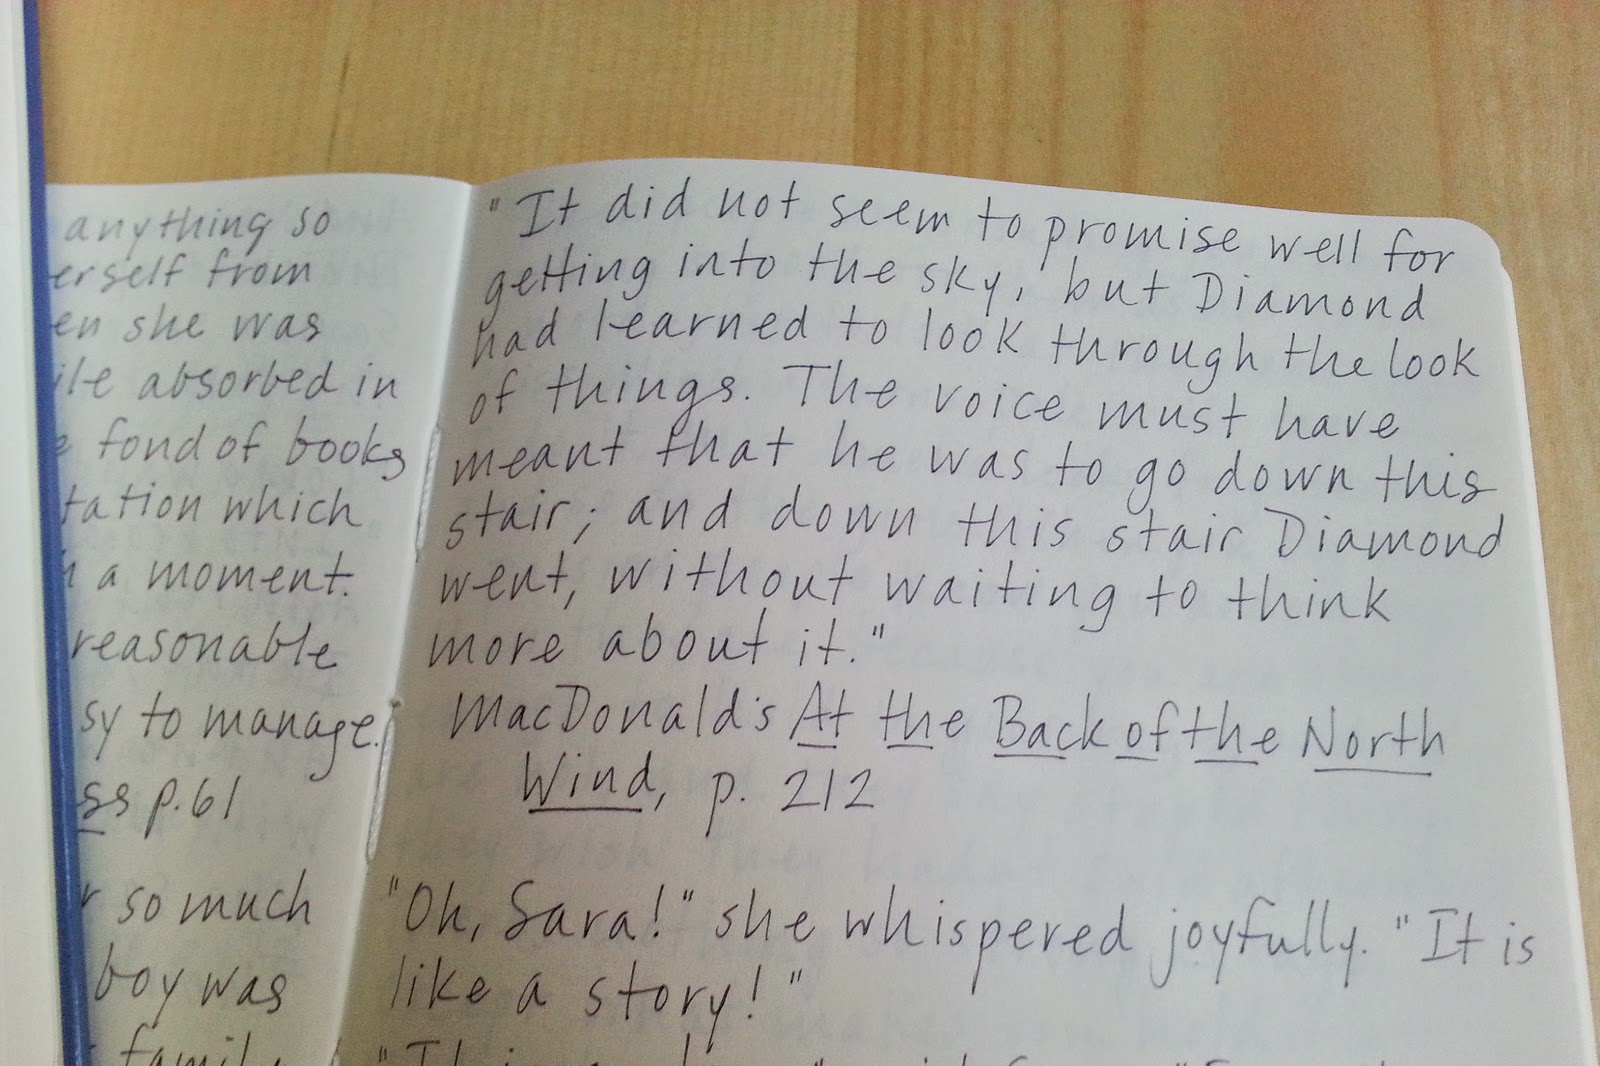 anything so
from
she was
absorbed in
fond of books
which
a moment.
reasonable
to manage.
p.61
so much
boy was
"It did not seem to promise well for
getting into the sky, but Diamond
had learned to look through the look
of things. The voice must have
meant that he was to go down this
stair; and down this stair Diamond
went, without waiting to think
more about it."
MacDonald's At the Back of the North
Wind, p. 212
"Oh, Sara!" she whispered joyfully. "It is
like a story!"